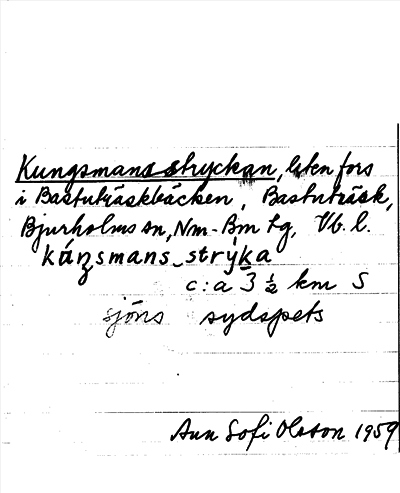 Kungsmansstryckan, liten fors
i Bastuträskbäcken, Bastuträsk,
Bjurholms sn, Nm-Bm tg, Vb. l.
káŋsmans_strýka
c:a 3 ½ km S
sjöns sydspets
Ann Sofi Olsson 1959